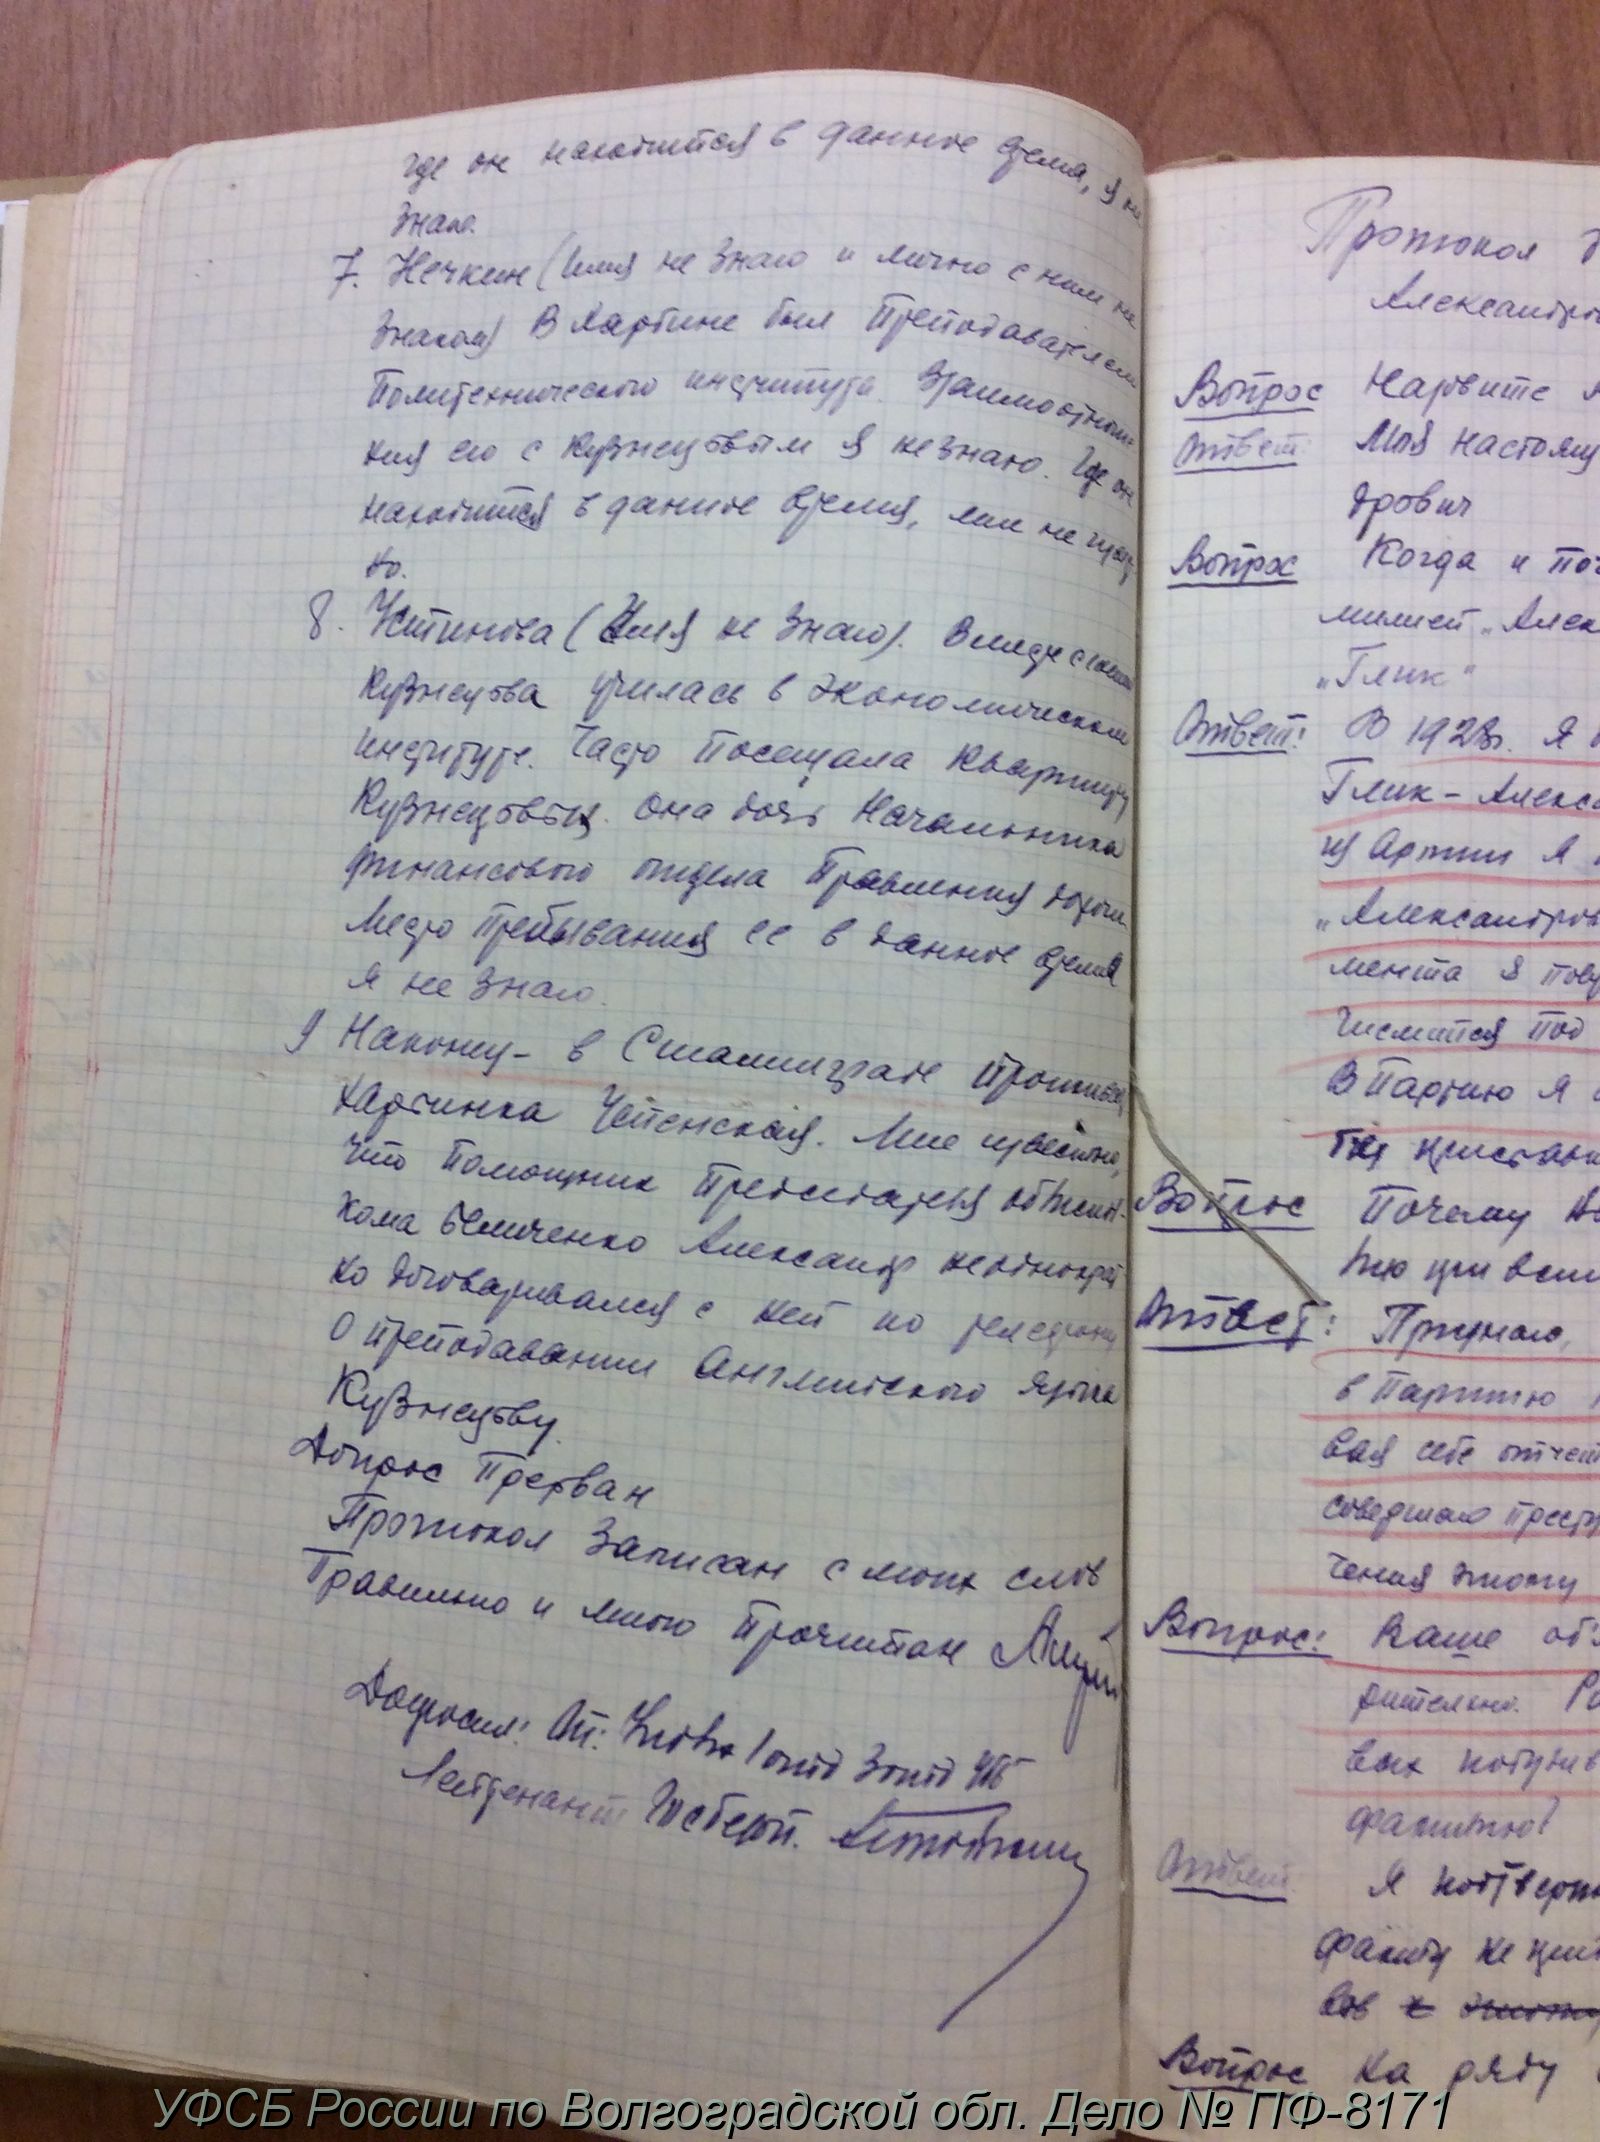 где он находится в данное время, я не
знаю.
7. Нечкин (имя не знаю и лично с ним не
знаком) В Харбине был преподавателем
Политехнического института. Взаимоотноше-
ния его с Кузнецовым я не знаю. Где он
находится в данное время, мне не извест-
но.
8. Устинова (Имя не знаю). Вместе с женой
Кузнецова училась в Экономическом
институте. Часто посещала квартиру
Кузнецовых. Она дочь Начальника
финансового отдела Правления дороги
Место пребывания ее в данное время
я не знаю.
9 Наконец - в Сталинграде проживает
харбинка Успенская. Мне известно,
что помощник председателя облиспол-
кома Величенко Александр неоднократ-
но договаривался с ней по телефону
о преподавании Английского языка
Кузнецову.
Допрос прерван
Протокол записан с моих слов
Правильно и мною прочитан
Допросил: Оп. 1 отд 3 отд УГБ
Лейтенант Госбезоп.
Протокол
Александров
Вопрос Назовите
Ответ: Моя настоящ
дрович
Вопрос Когда и поч
милией „Алек
„Глик"
Ответ: В 1923г. я
Глик - Алекса
из Армии я
„Александров
мента я полу
числится под
В Партию я
без приставк
Вопрос Почему
Ответ: Признаю,
в Партию
вая себе отчет
совершаю преступ
чения этому
Вопрос: Ваше об
дительно.
вых получив
фамилию?
Ответ Я подтверж
факту не при
вов
Вопрос На ряду
УФСБ России по Волгоградской обл. Дело № ПФ-8171